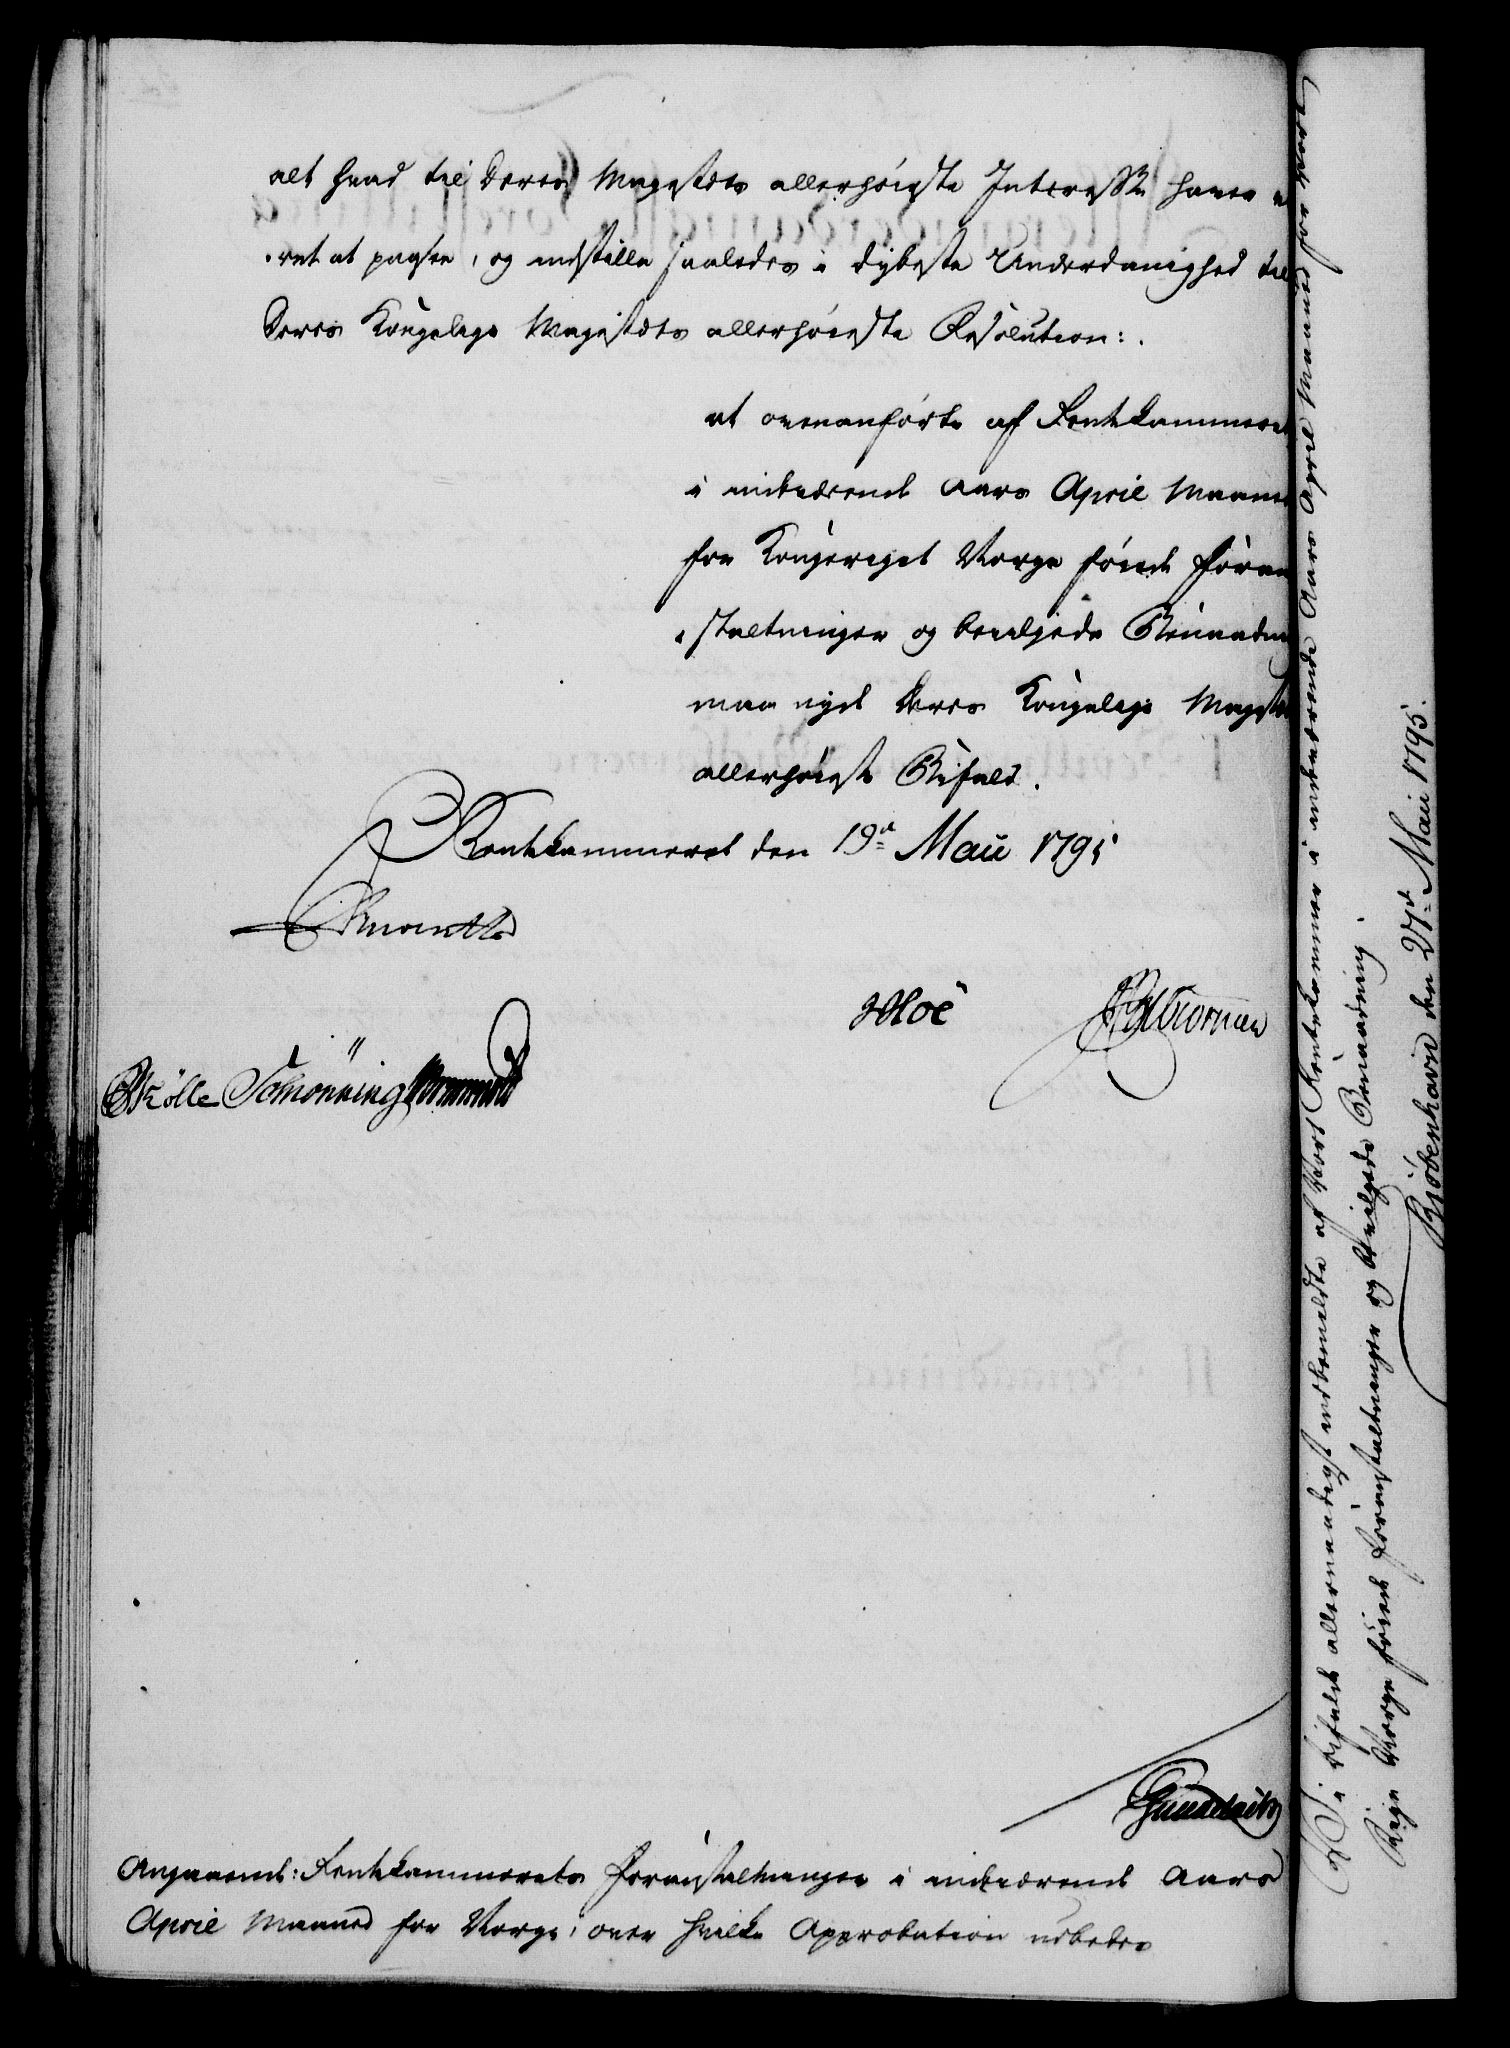 alt hvad til Deres Majestæts allerhöieste Interesse haver
at paasee, og indstille saaledes i dybeste Underdanighed til
Deres Kongelige Majestæts allerhöieste Resolution:.
at ovenanförte af Rentekammeret
i indeværende Aars April Maaned
for Kongeriget Norge föiede Foran-
staltninger og bevilgede Benaadning
maa nyde Deres Kongelige Majestæts
allerhöieste Bifald.
Rentekammeret den 19d Maii 1795
Hoë
Kölle Schiönning
Angaaende: Rentekammerets Foranstaltninger i indeværende Aars
April Maaned for Norge, over hvilke Approbation udbedes
Vi bifalde allernaadigst indbemeldte af Vort Rentekammer i indeværende Aars April Maaned for Vort
Rige Norge föiede Foranstaltninger og bevilgede Benaadning.
Kjöbenhavn den 27d Maii 1795.